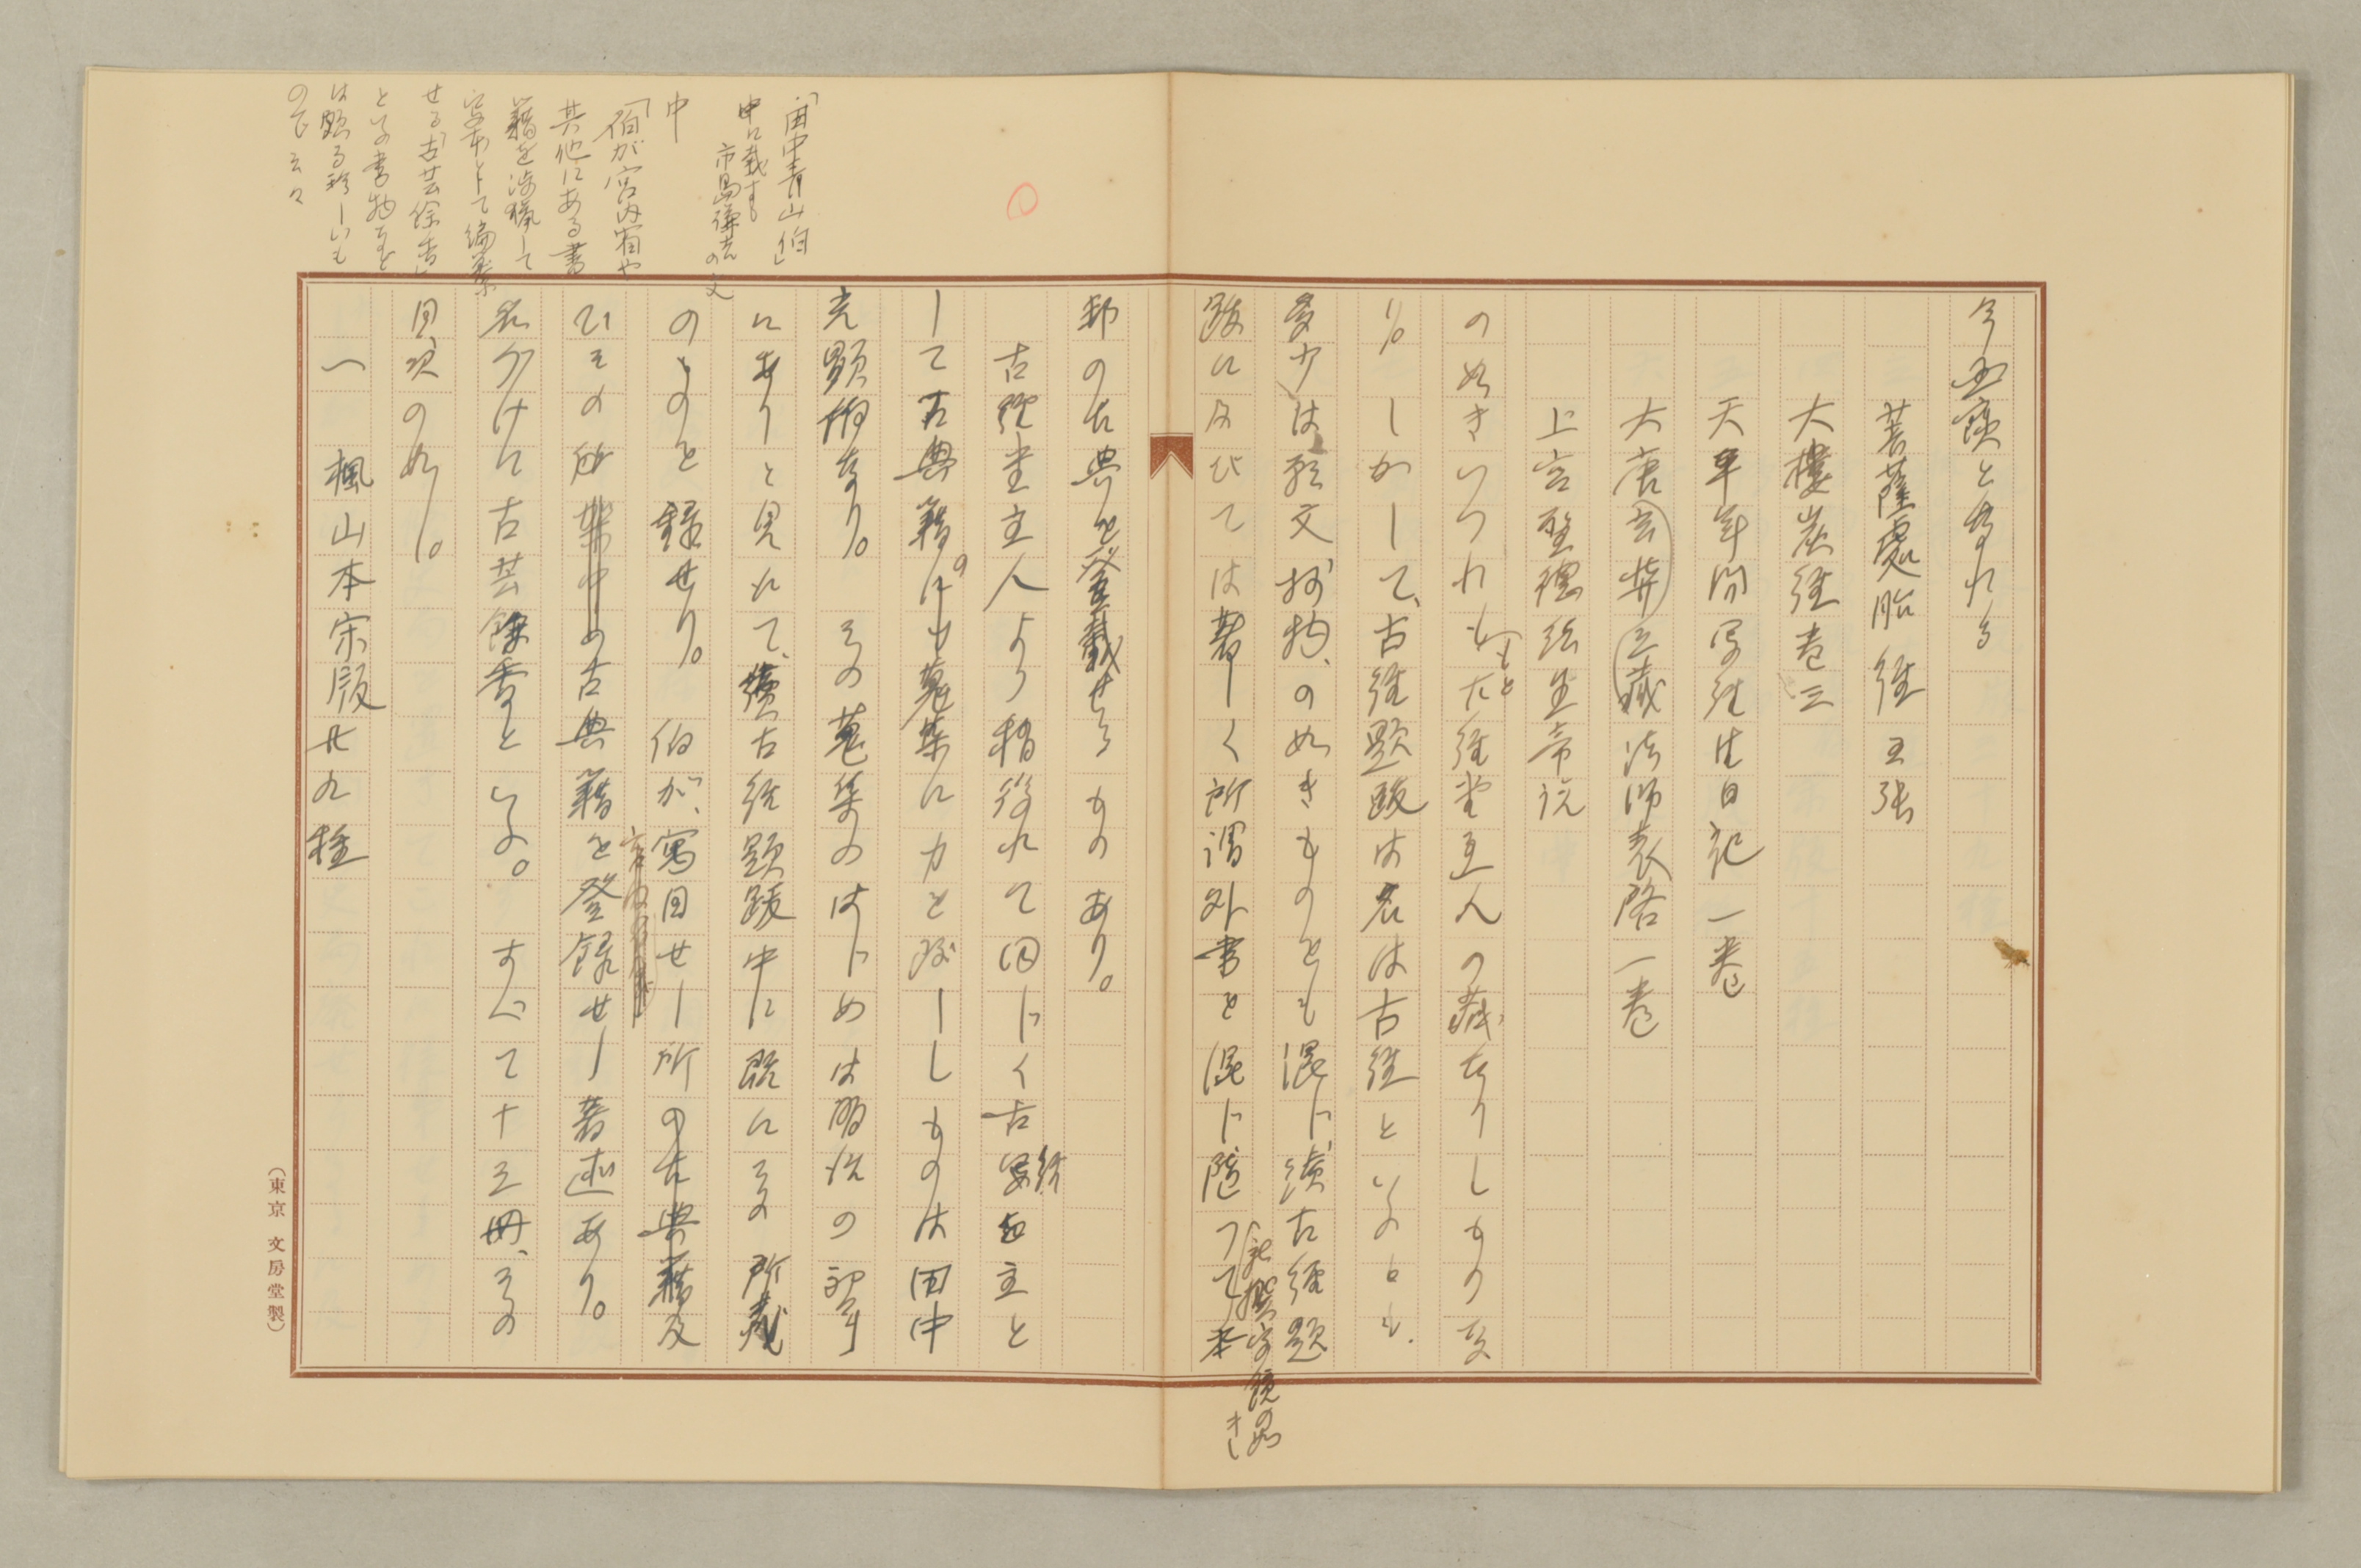 今国宝となれる
菩薩處胎経五張
大樓炭経巻三
天平年間写経生日記一巻
大唐玄奘三藏法師表啓一巻
上宮聖徳法王帝説
のめきいづれももと古経堂主人の藏なりしもの
り。しかして、古経題跋は名は古経といふとも、
多少は願文、ののごときものとも混じ、續古経題
跋に及びては著しく所謂外書を混じ隨つて本
新撰字鏡の如きし
邦の古典を登載せるものあり。
古経堂主人より稍後れて同じく古経を主と
して古典籍の蒐集に力を致ししものは田中
光顕伯なり。その蒐集のはじめは明治の初年
にありと見れて、續古経題跋中に既にその所蔵
のものを録せり。伯が、寫目せし所の古典籍及
ひその所の古典籍を登録せし著述あり。
名づけて古芸餘香といふ。すべて十五冊、その
目次の如し。
一 楓山本宋版廿九種
「田中青山伯」
中に載する
市島謙吉の文
中
「伯が宮内省や
其他にある書
籍を渉猟して
写本として編纂
せる「古芸餘香」
といふ書物など
は頗る珍しいも
ので云々
(東京 文房堂製)